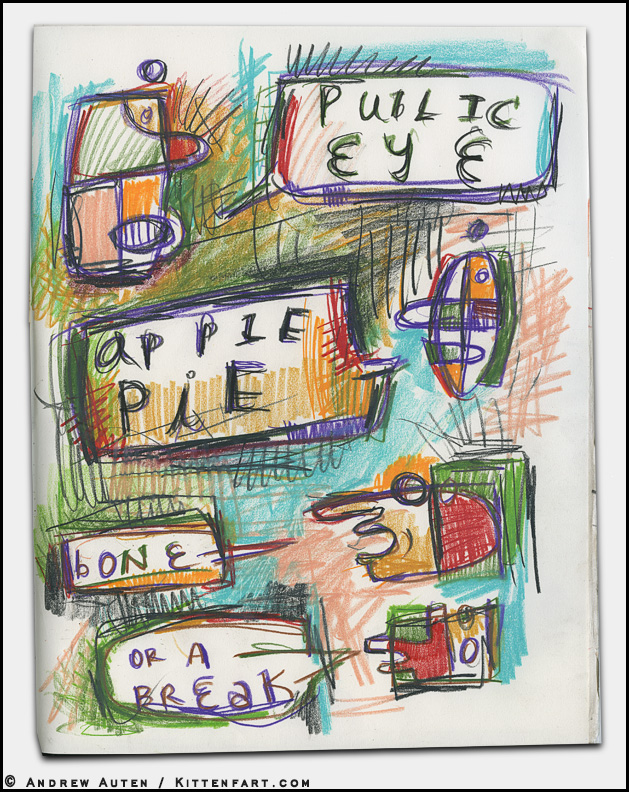 PUBLIC
EYE
apPIE
PiE
bONE
OR A
BREaK
© ANDREW AUTEN / KITTENFART.COM